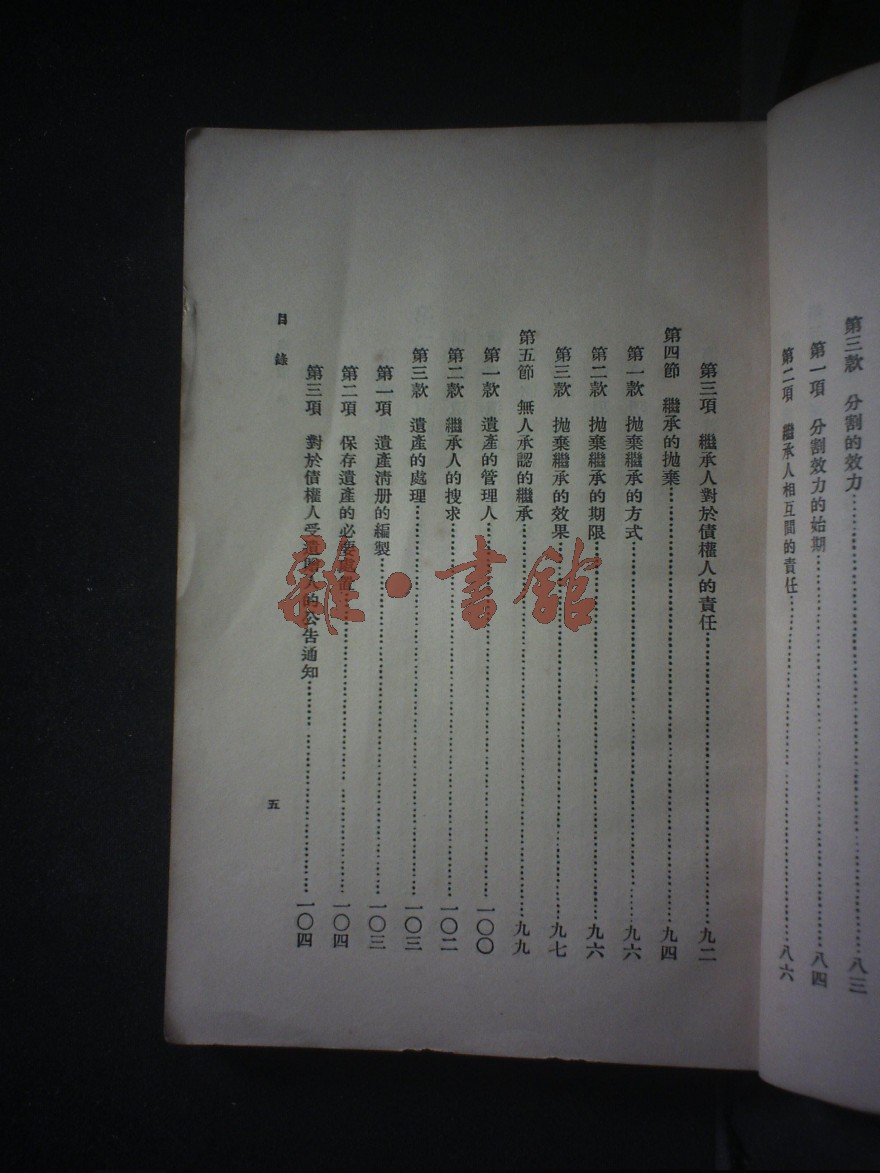 第三款 分割的效力……八三
第一項 分割效力的始期……八四
第二項 繼承人相互間的責任……八六
第三項 繼承人對於債權人的責任……九二
第四節 繼承的拋棄……九四
第一款 拋棄繼承的方式……九六
第二款 拋棄繼承的期限……九六
第三款 拋棄繼承的效果……九七
第五節 無人承認的繼承……九九
第一款 遺產的管理人……一〇〇
第二款 繼承人的搜求……一〇二
第三款 遺產的處理……一〇三
第一項 遺產清册的編製……一〇三
第二項 保存遺產的必要處置……一〇四
第三項 對於債權人受遺贈人的公告通知……一〇四
目錄
五
雜·書館